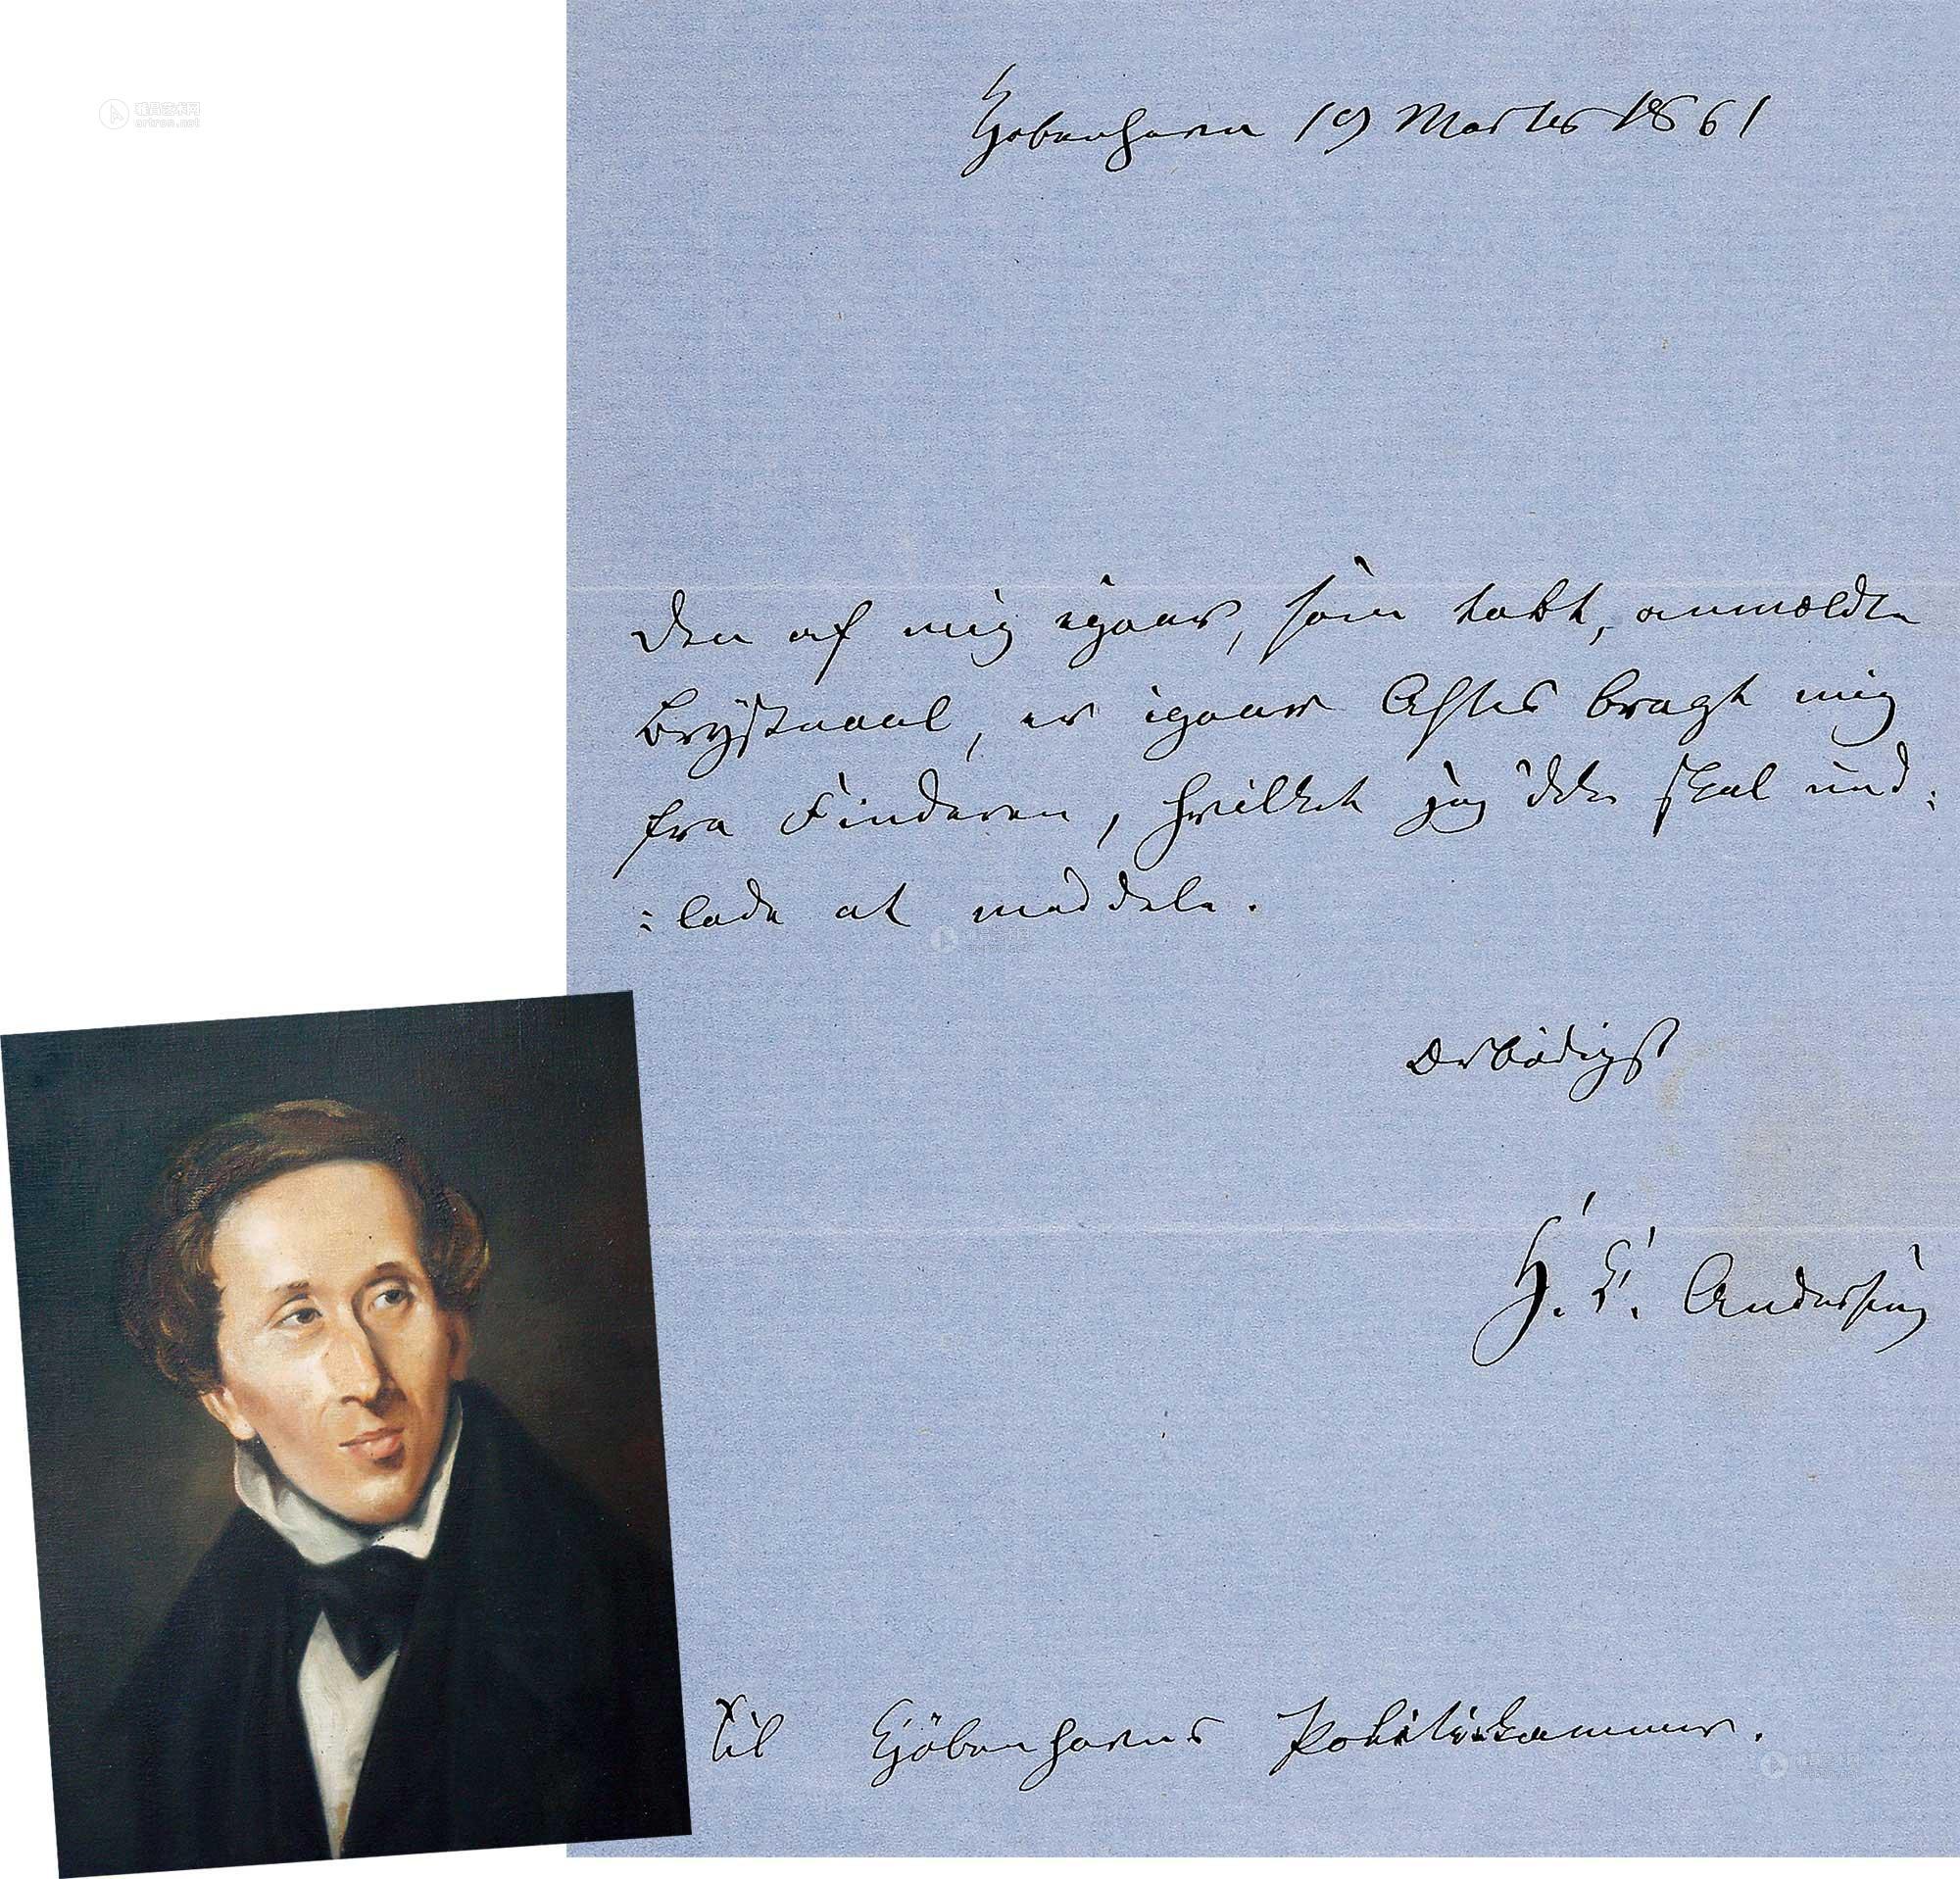 雅昌艺术网
artron.net
Kjøbenhavn 19 Marts 1861
Den af mig igaar, som tabt, anmældte
Brystnaal, er igaar Aftes bragt mig
fra Finderen, hvilket jeg ikke skal und:
:lade at meddele.
Ærbødigst
H. C. Andersen
Til Kjöbenhavns Politikammer.